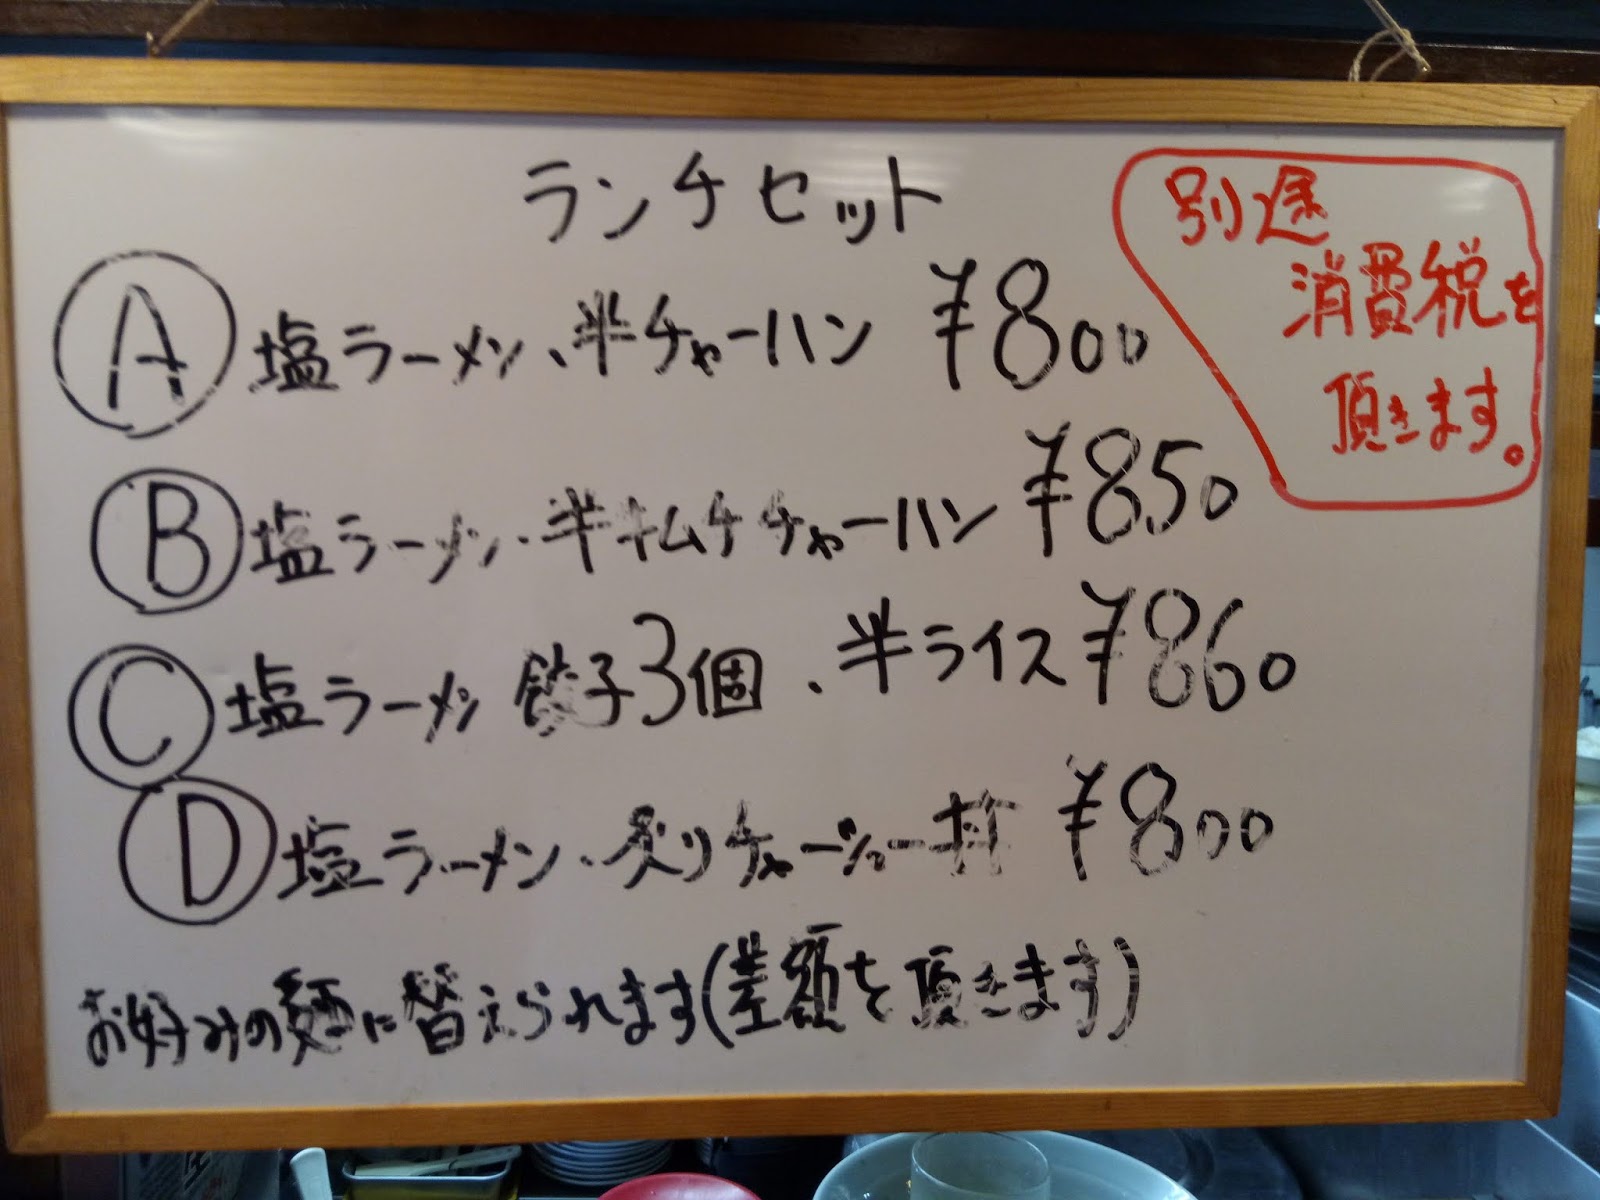 ランチセット
別途
消費税を
頂きます。
A 塩ラーメン、半チャーハン ¥800
B 塩ラーメン、半キムチチャーハン ¥850
C 塩ラーメン 餃子3個、半ライス ¥860
D 塩ラーメン、炙りチャーシュー丼 ¥800
お好みの麺に替えられます(差額を頂きます)